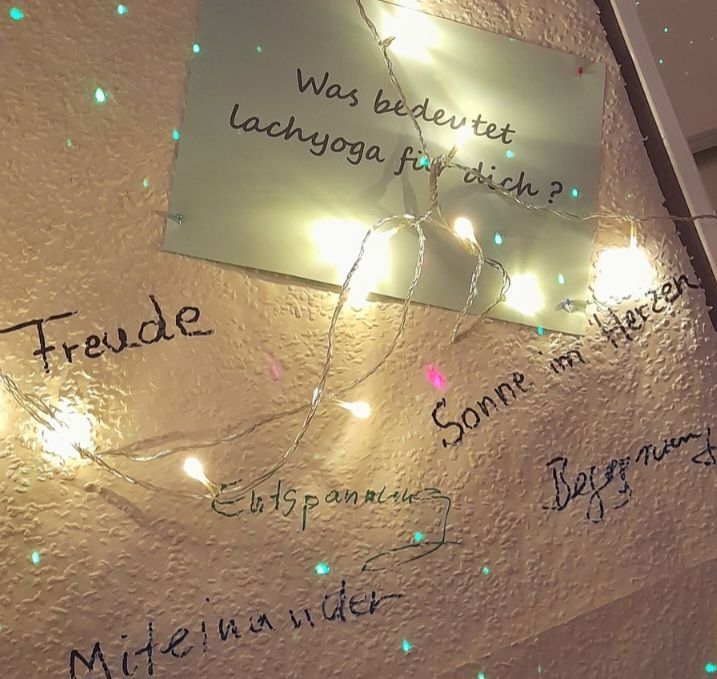 Was bedeutet
lachyoga für dich ?
Freude
Sonne im Herzen
Begegnung
Entspannung
Miteinander